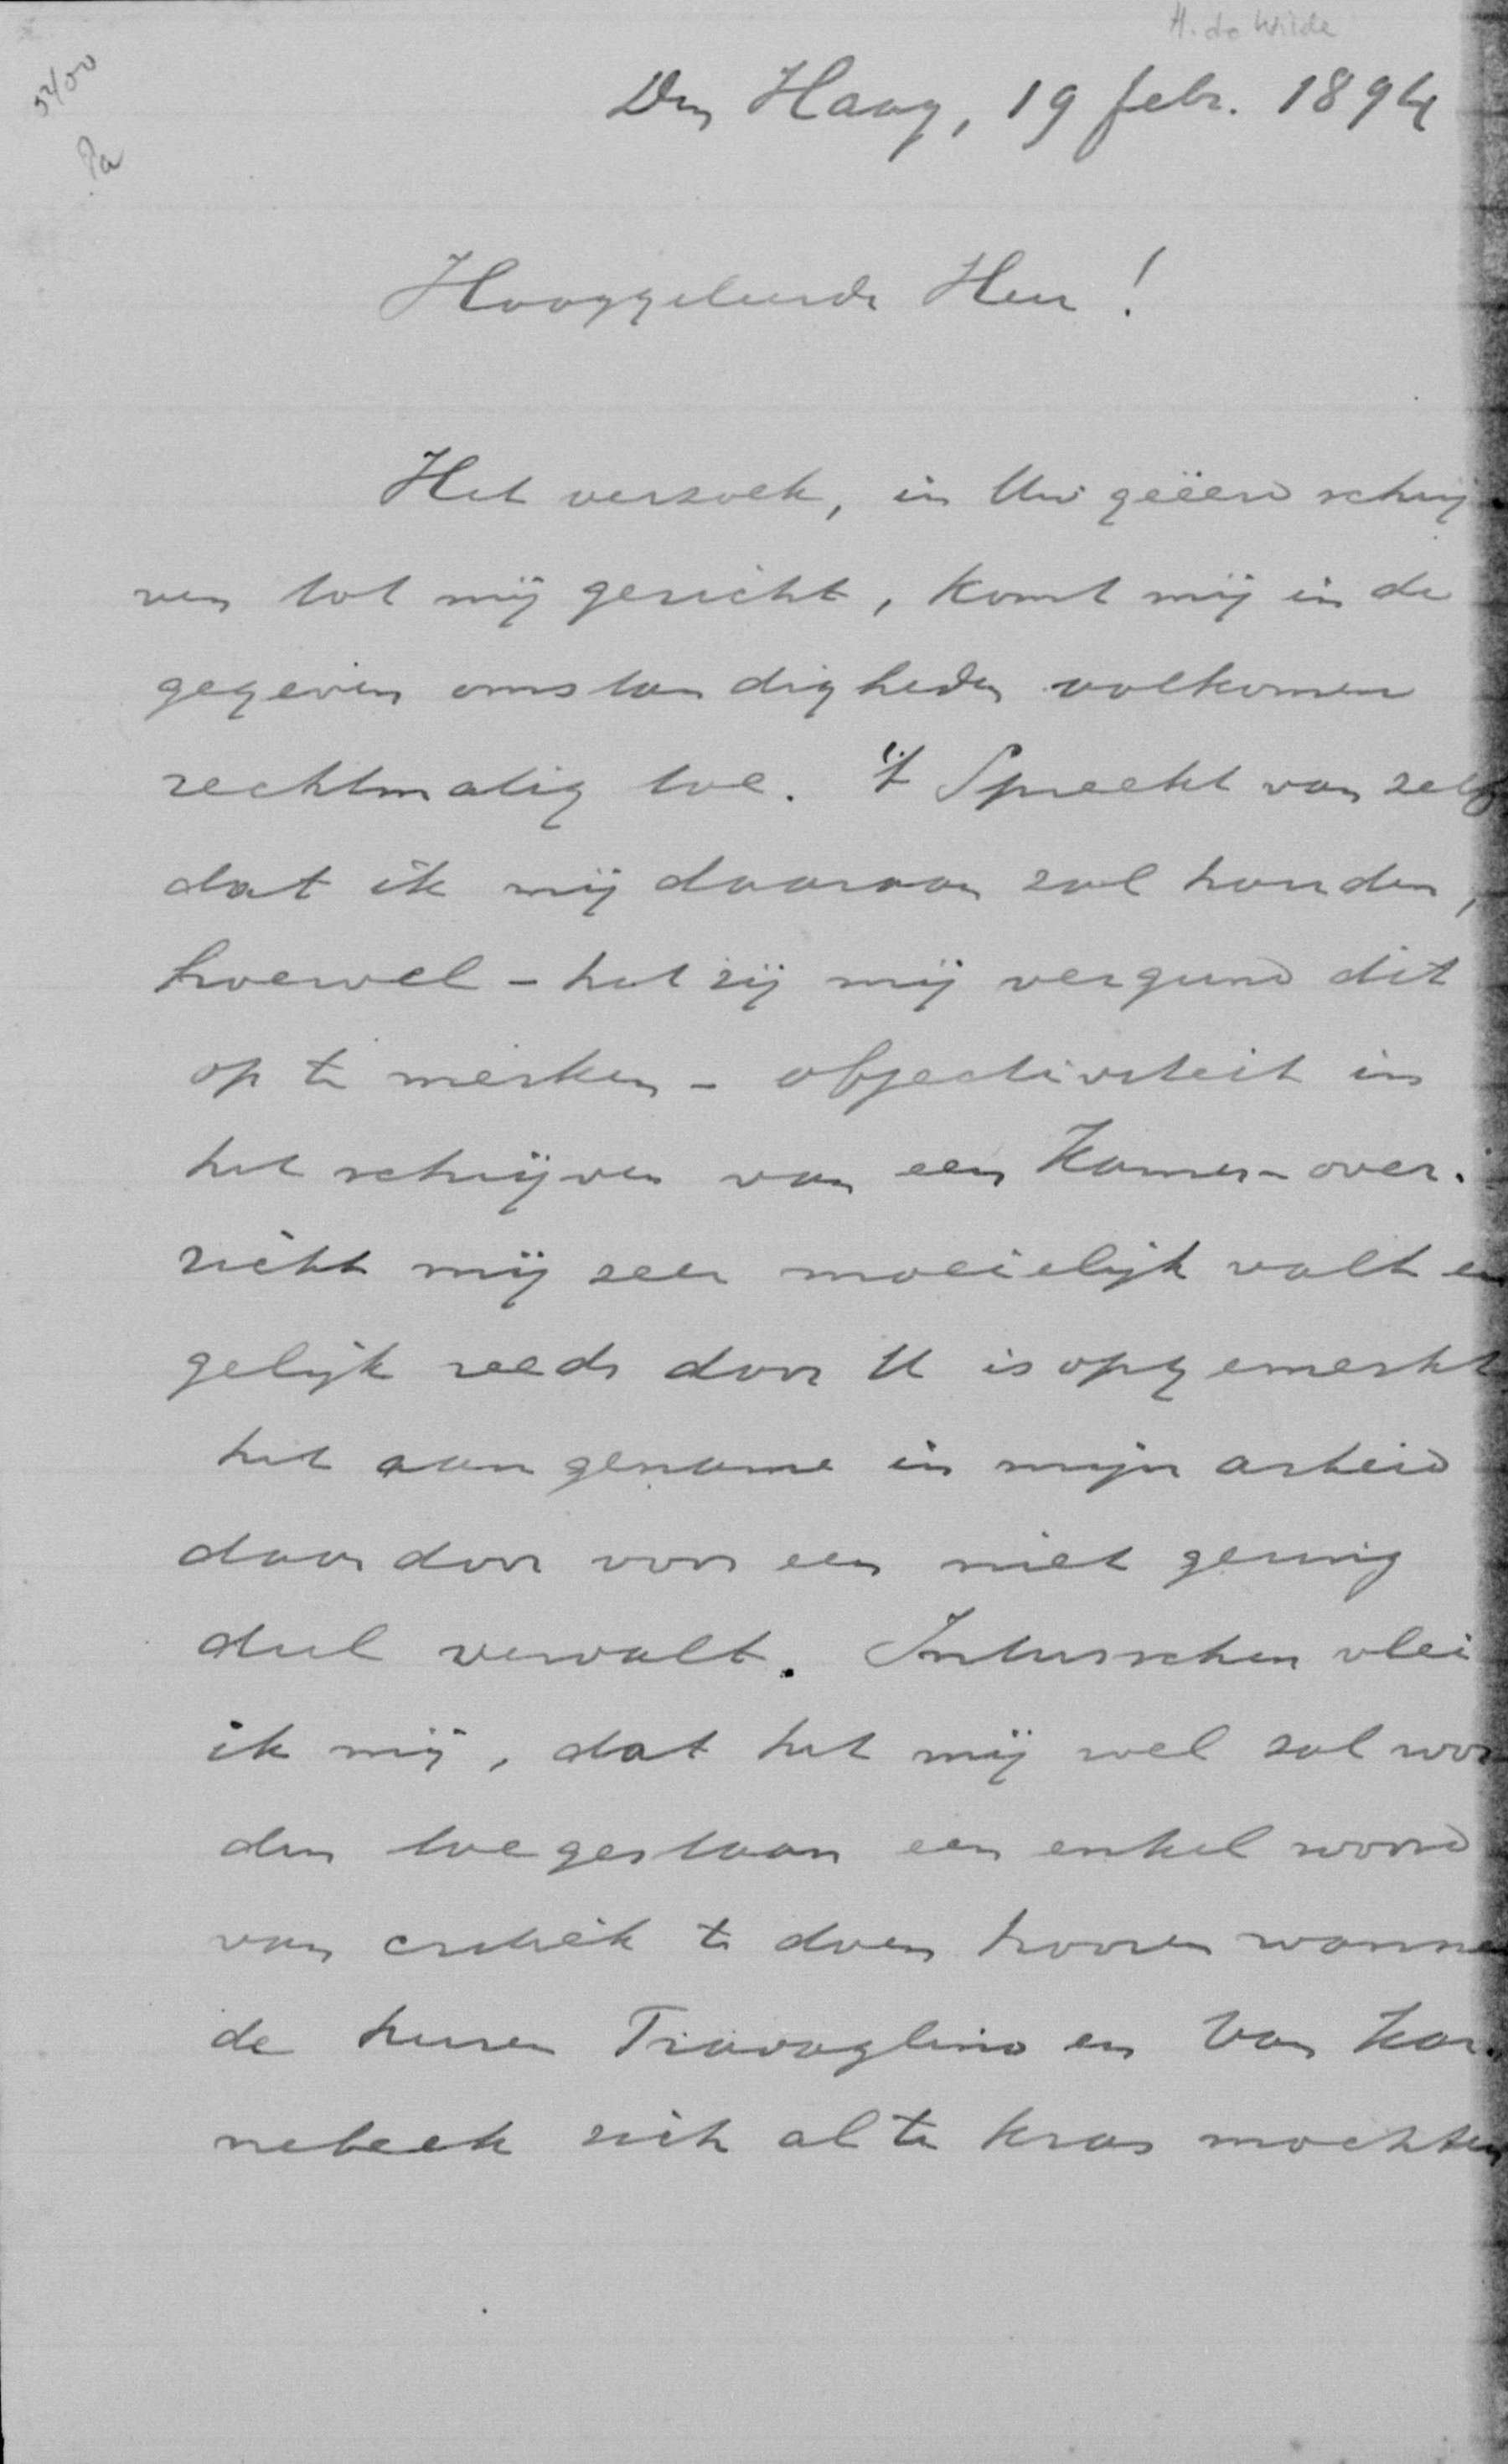 H. de Wilde
5400
Pa
Den Haag, 19 febr. 1894
Hooggeleerde Heer!
Het verzoek, in Uw geëerd schrij
ven tot mij gericht, komt mij in de
gegeven omstandigheden volkomen
rechtmatig toe. 't Spreekt van zelf
dat ik mij daaraan zal houden,
hoewel - het zij mij vergund dit
op te merken - objectiviteit in
het schrijven van een Kamer-over-
zicht mij zeer moeielijk valt en
gelijk reeds door U is opgemerkt
het aangename in mijn arbeid
daardoor voor een niet gering
deel vervalt. Intusschen vlei
ik mij, dat het mij wel zal wor
den toegestaan een enkel woord
van critiek te doen hooren wanne
de heeren Travaglino en Van Kar-
nebeek zich al te kras mochten